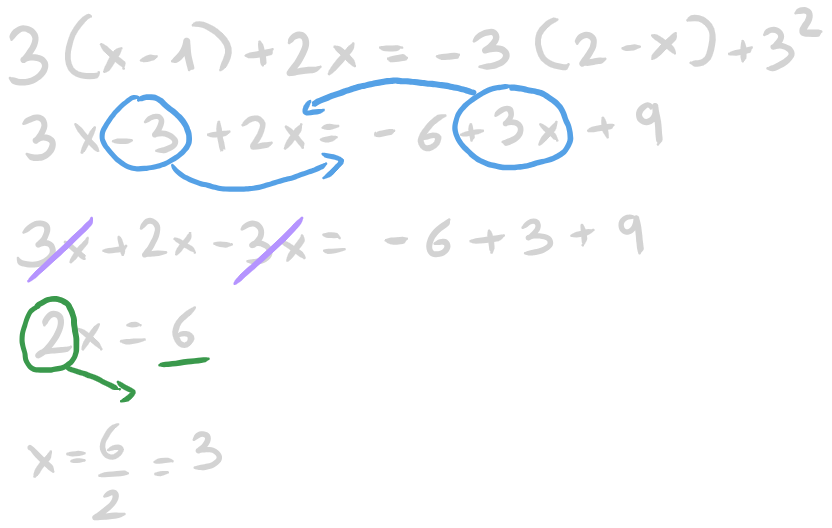 3(x-1)+2x=-3(2-x)+3²
3x-3+2x=-6+3x+9
3x+2x-3x=-6+3+9
2x=6
x=6/2=3